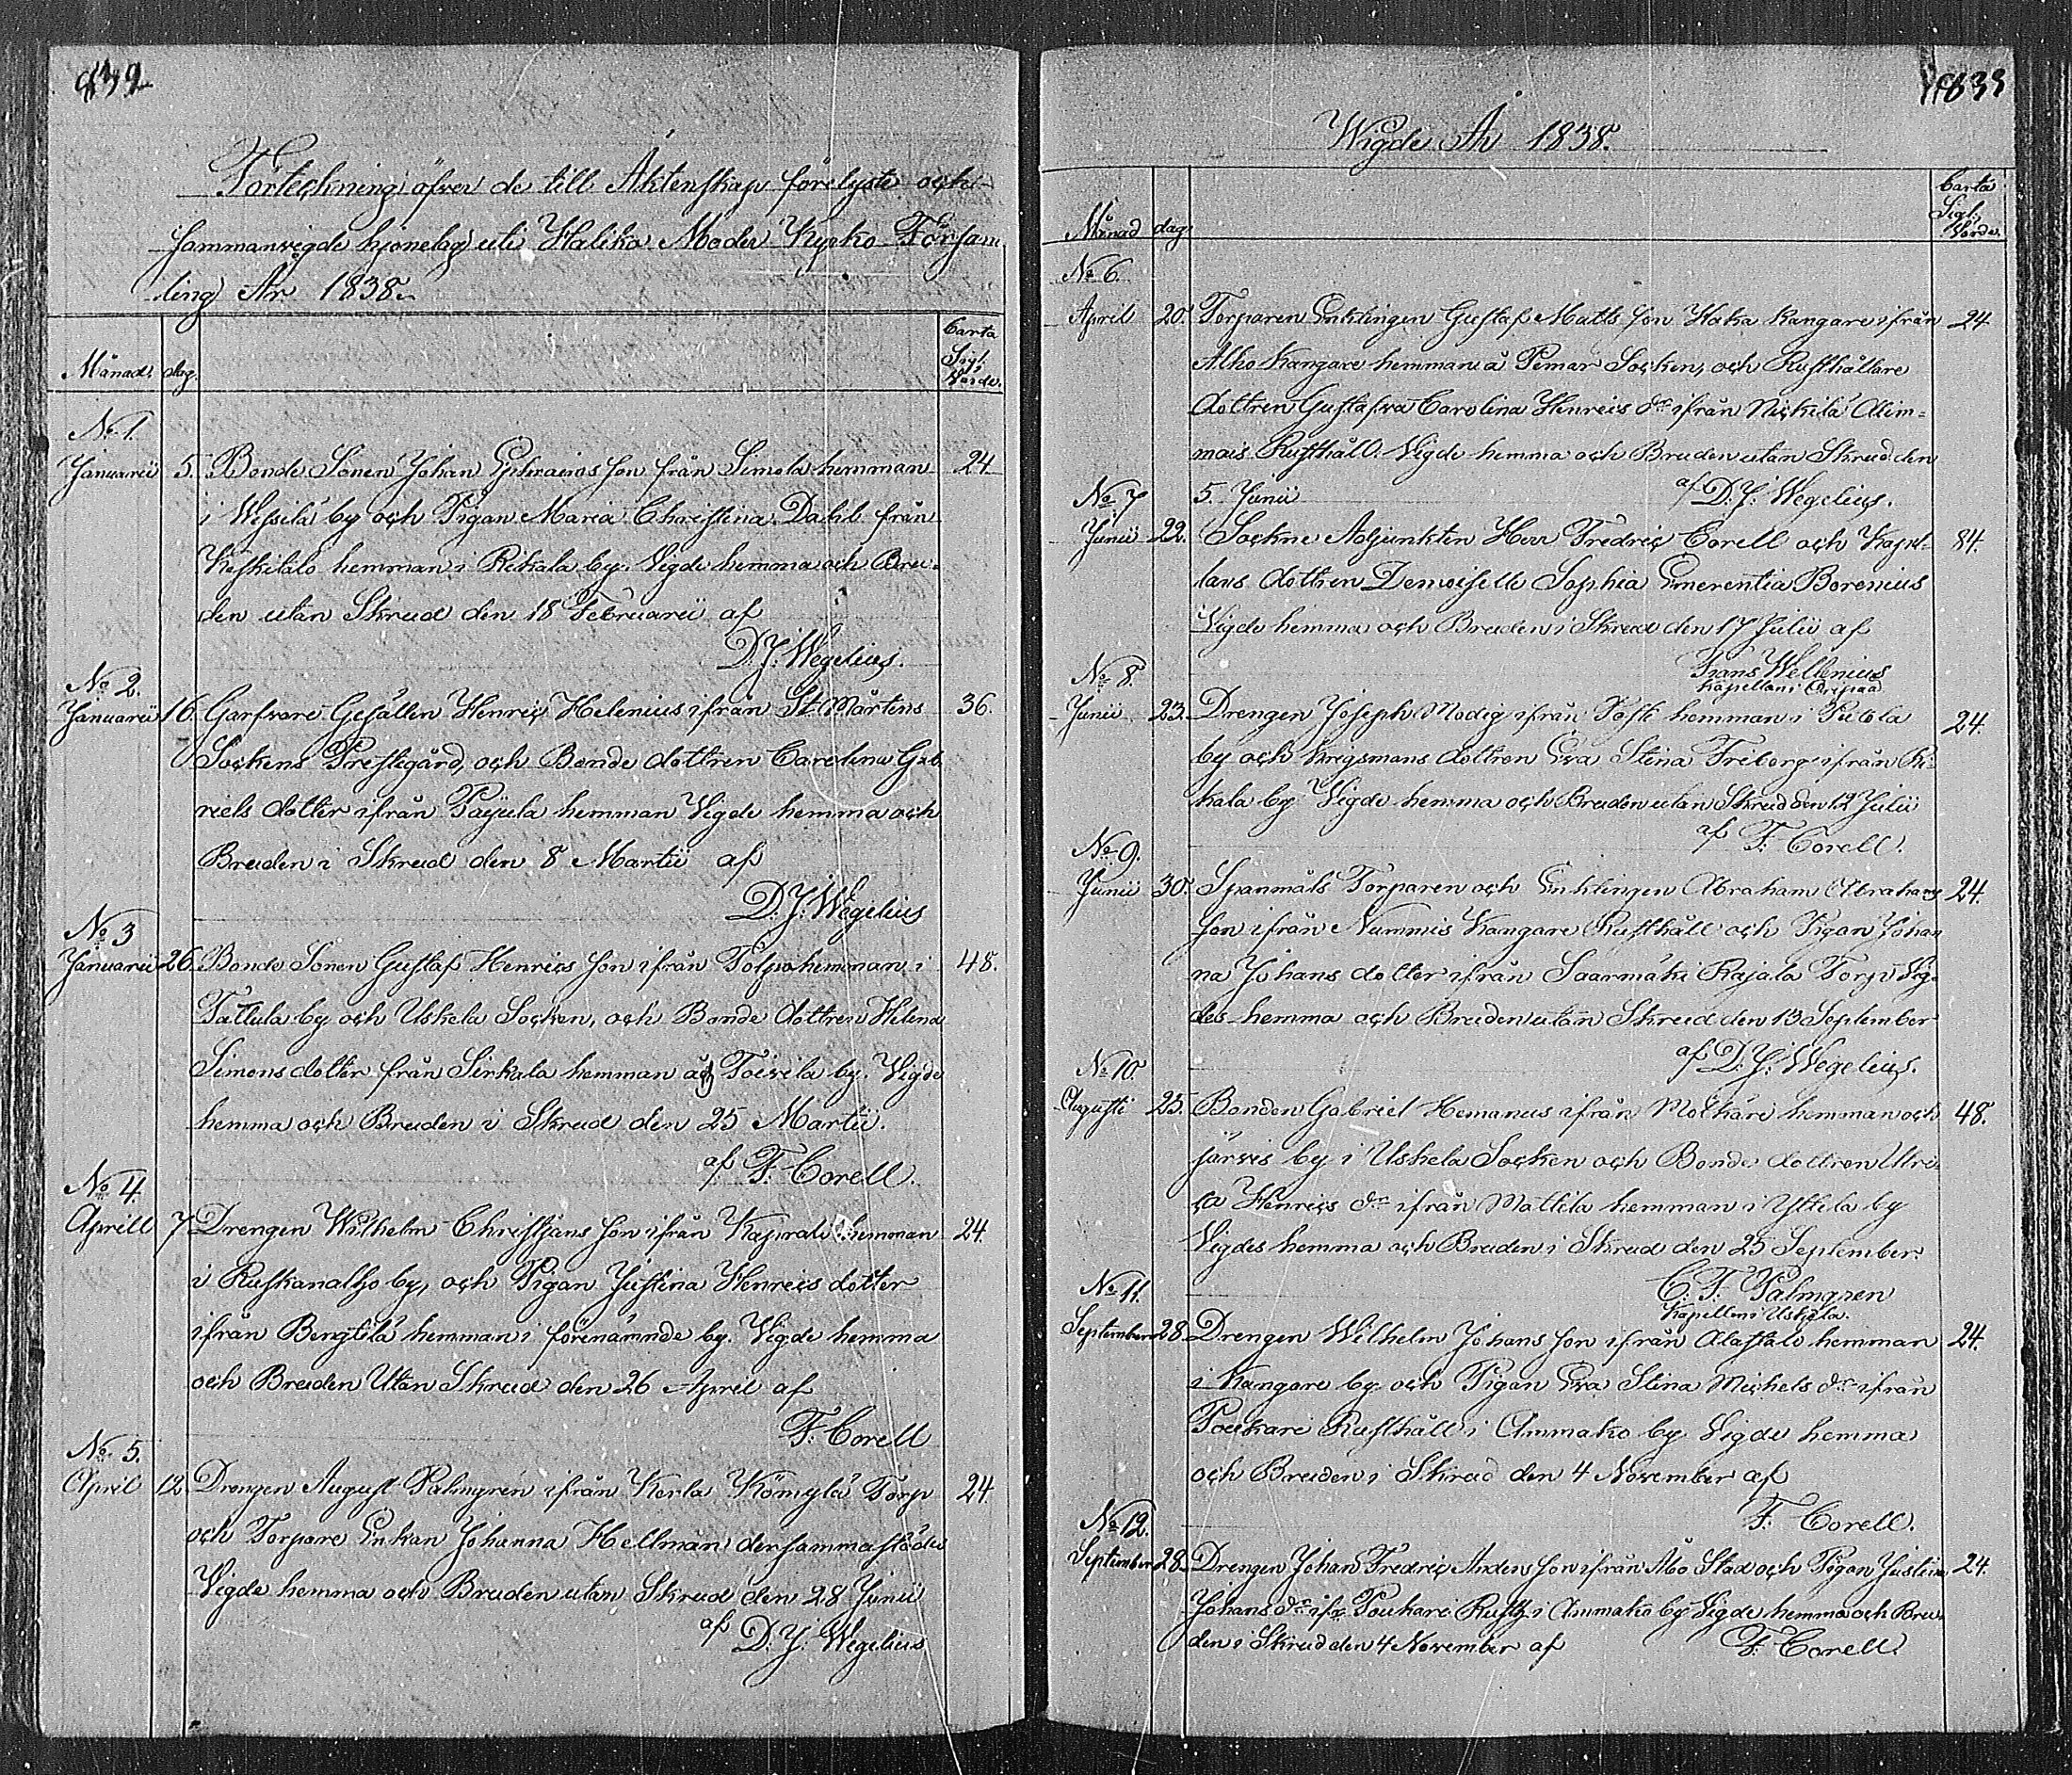 Förteckning öfver de till Äktenskap förelyste och
sammanvigde hjonelag uti Haliko Moder Kyrko Församling
ling År 1838.
Månad. dag. Carta Sigl. Värde.
No 1.
Januarii 5. Bonde Sonen Johan Ephraims son från Simola hemman 24
i Wessilä by och Pigan Maria Christina Dahl från
Keskitalo hemman i Rikala by. Vigde hemma och Bru-
den utan Skrud den 18 Februarii af
D. J. Wegelius.
No 2.
Januarii 16. Garfvare Gesällen Henric Helenius ifrån St Mårtens 36.
Sockens Prestegård, och Bonde dottren Carolina Gab
riels dotter ifrån Päjula hemman Vigde hemma och
Bruden i Skrud den 8 Martii af
D. J. Wegelius
No 3
Januarii 26 Bonde Sonen Gustaf Henrics son ifrån Tolpo hemman i 48.
Tattula by och Uskela Socken, och Bonde dottren Helena
Simons dotter från Sirkala hemman och Toivila by. Vigde
hemma och Bruden i Skrud den 25 Martii.
af F. Corell.
No 4.
Aprill 7 Drengen Wilhelm Christjans son ifrån Kaprali hemman 24.
i Ruskanalho by, och Pigan Justina Henrics dotter
ifrån Bengtilä hemman i förenämnde by. Vigde hemma
och Bruden Utan Skrud den 26 April af
F. Corell
No 5.
April 12 Drengen August Palmgren ifrån Kerla Kömylä Torp 24.
och Torpare Enkan Johanna Hellman dersammastädes
Vigde hemma och Bruden utan Skrud den 28 Junii
af D. J. Wegelius
1839
Wigde År 1838.
Månad dag. Carta Sigl. Värde.
No 6.
April 20. Torparen Enklingen Gustaf Matts son Haka Kangare ifrån 24
Alho Kangare hemman å Pemar Socken, och Rusthållare
dottren Gustafva Carolina Henrics dr ifrån Nickilä Alim-
mais Rusthåll. Vigde hemma och Bruden utan Skrud den
5. Junii af D. J. Wegelius.
No 7
Junii 22. Sockne Adjunkten Herr Fredric Corell och Kapel- 84.
lans dottren Demoiselle Sophia Emerentia Borenius
Vigde hemma och Bruden i Skrud den 17 Julii af
Frans Wellenius
Kapellan i Angelniemi
No 8.
Junii 23. Drengen Joseph Modig ifrån Tosti hemman i Puttola 24.
by och Krigsmans dottren Eva Stina Friberg ifrån Ri-
kala by Vigde hemma och Bruden utan Skrud den 12 Julii
af F. Corell.
No 9.
Junii 30. Spanmåls Torparen och Enklingen Abraham Abrahams 24.
son ifrån Nummis Kangare Rusthåll och Pigan Johan
na Johans dotter ifrån Saarmäki Rajala Torp Vig-
des hemma och Bruden utan Skrud den 13 September
af D. J. Wegelius.
No 10.
Augusti 25. Bonden Gabriel Hemanus ifrån Molkäri hemman och 48.
järvis by i Uskela Socken och Bonde dottren Ulri
ca Henrics dr ifrån Mattila hemman i Yttelä by
Vigdes hemma och Bruden i Skrud den 25 September.
C. F. Palmgren
Kapellan i Uskela.
No 11.
September 28 Drengen Wilhelm Johans son ifrån Alastalo hemman 24.
i Kangare by och Pigan Eva Stina Michels dr ifrån
Poukari Rusthåll i Ammako by Vigde hemma
och Bruden i Skrud den 4 November af
F. Corell.
No 12.
September 28. Drengen Johan Fredric Anders son ifrån Åbo Stad och Pigan Justina 24.
Johans dr ifr Poukari Rusth i Ammako by Vigde hemma och Bru-
den i Skrud den 4 November af F. Corell.